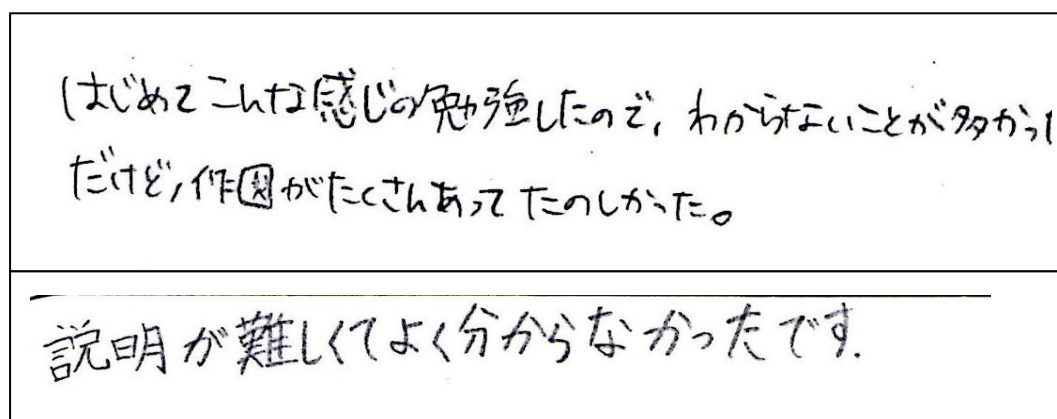 はじめてこんな感じの勉強したので、わからないことが多かっ
だけど、作図がたくさんあってたのしかった。
説明が難しくてよく分からなかったです.